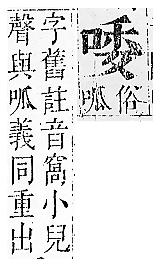 唩
俗
呱
字舊註音窩小兒
聲與呱義同重出